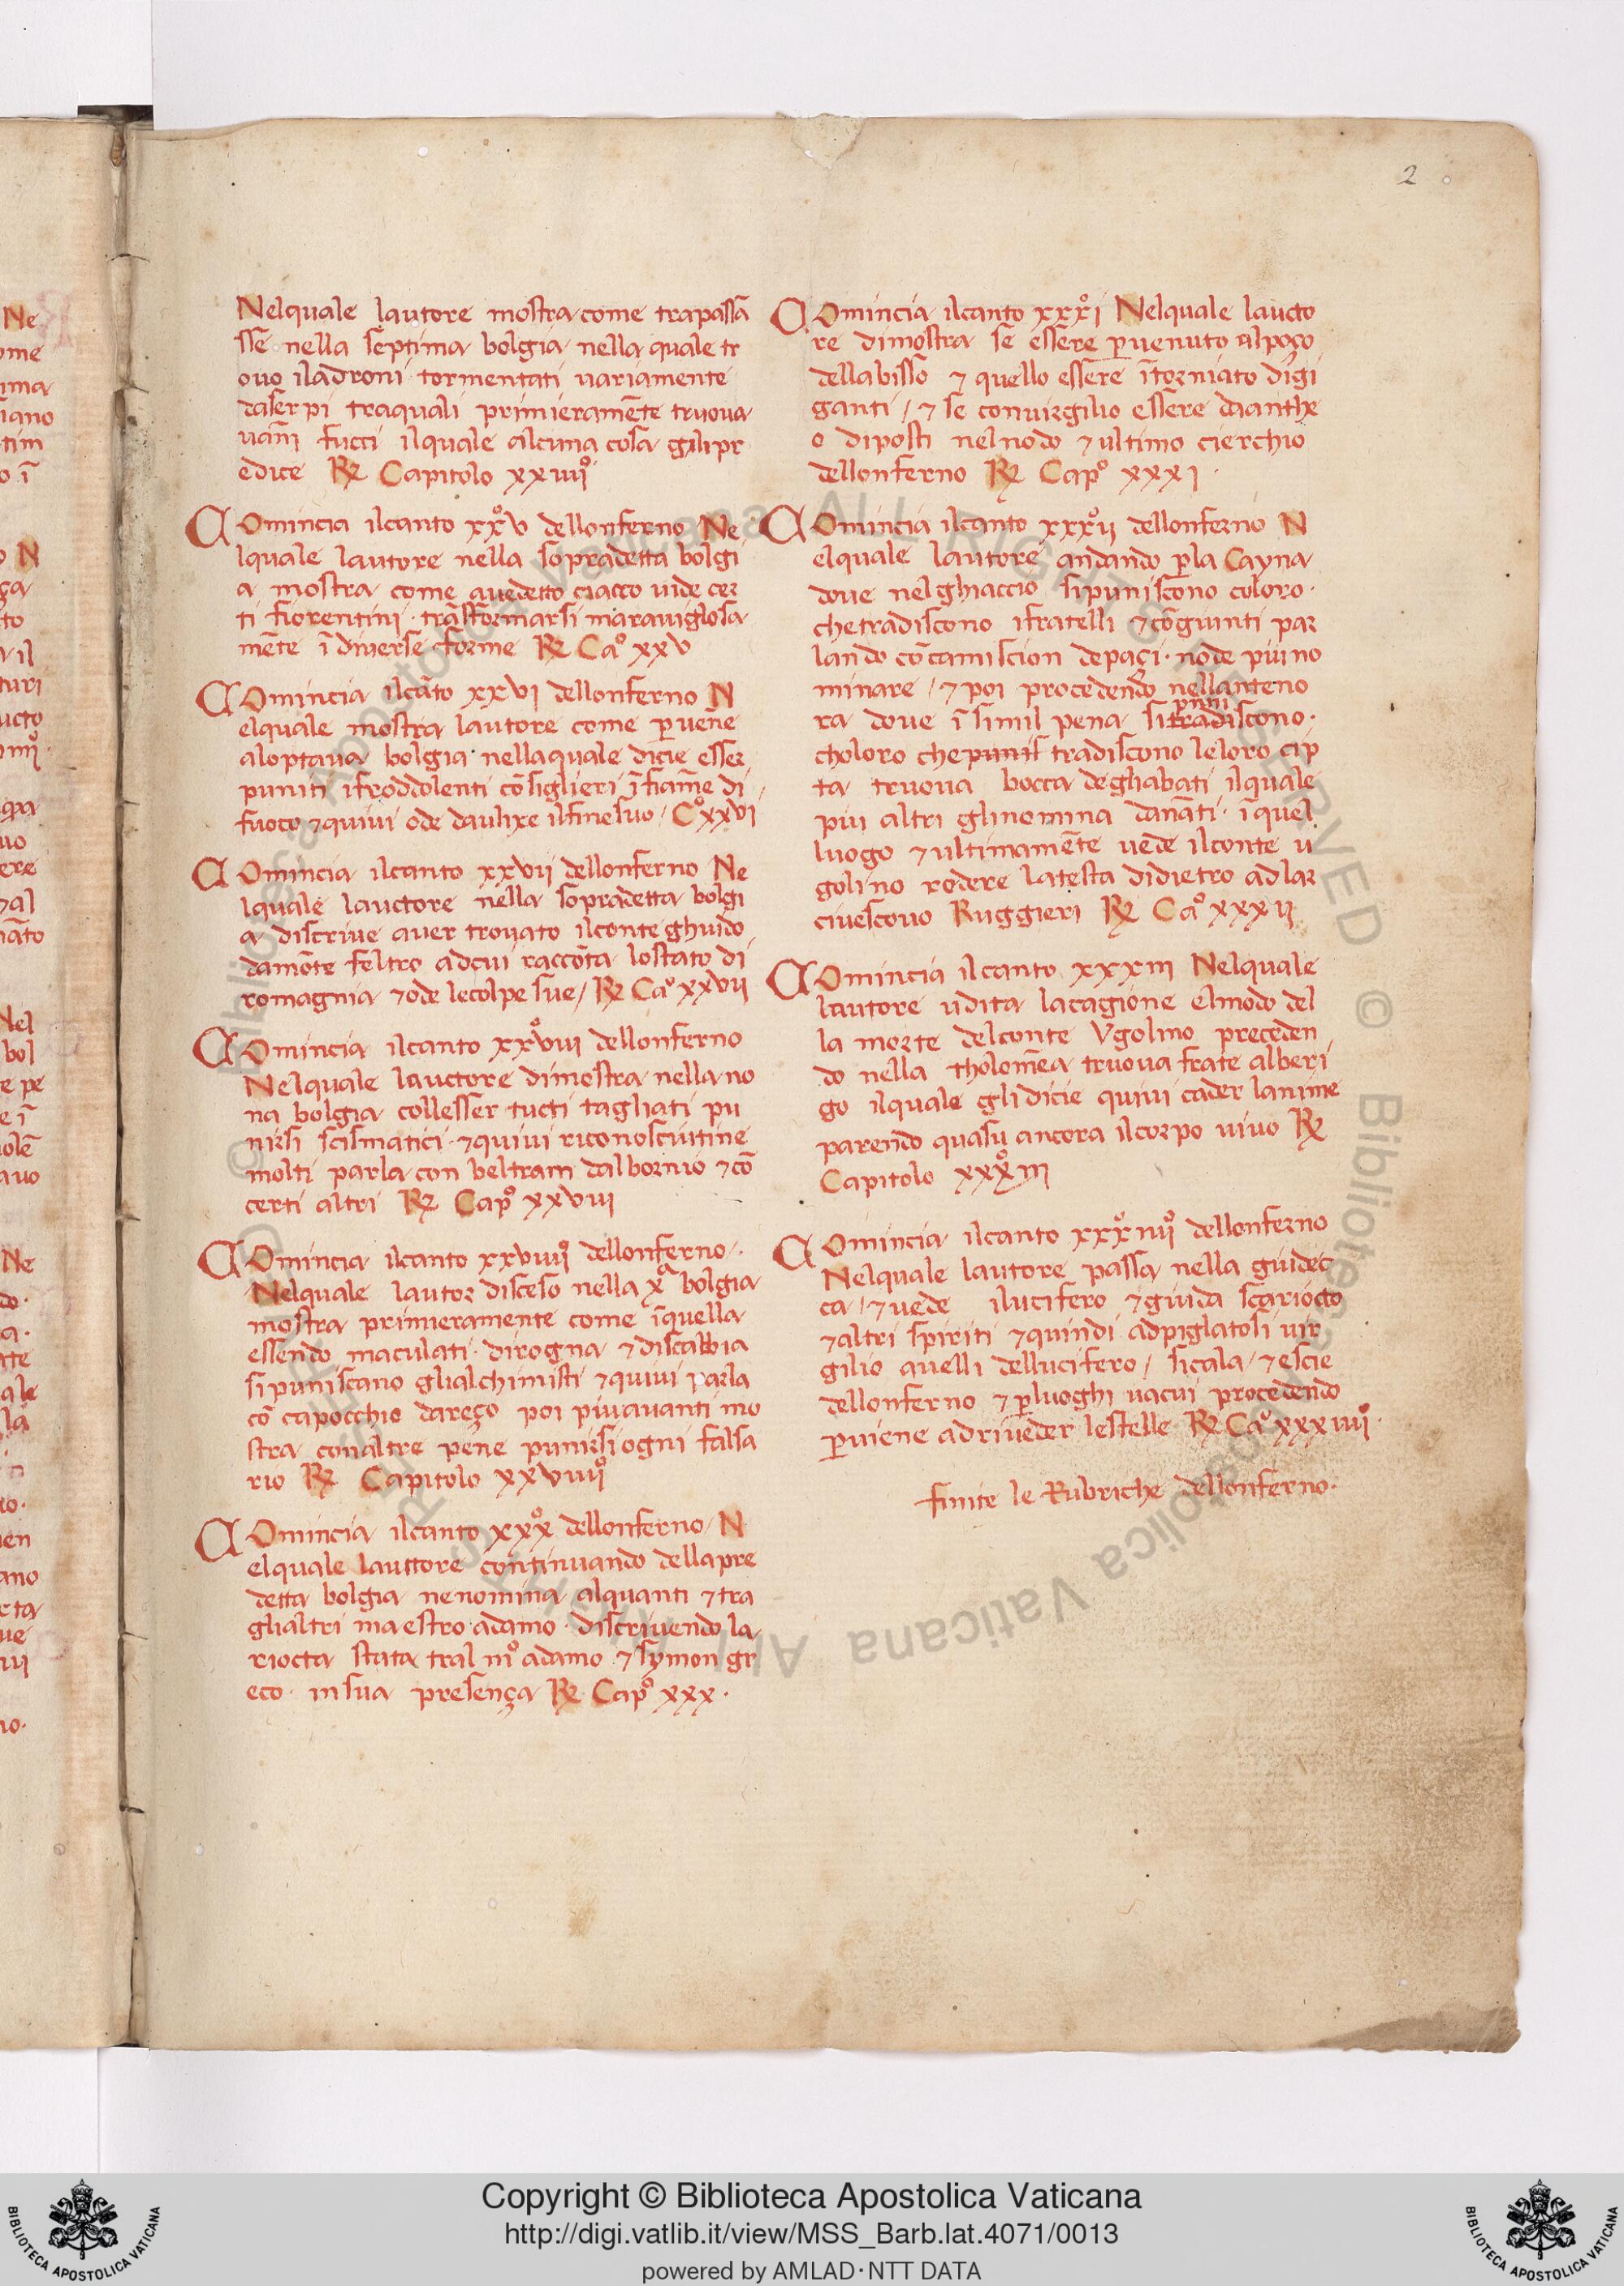 2
Nelquale lautore mostra come trapassã
sse nella septima bolgia nella quale tr
ouo iladroni tormentati uariamente
daserpi traquali primieramẽte truoua
uañi fucci ilquale alcuna cosa glipr
edice R Capitolo xxiiiiº
Comincia ilcanto xxºv dellonferno Ne
lquale lautore nella sopradetta bolgi
a mostra come auedetto ciacco uide cer
ti fiorentini · trãsformarsi marauiglosa
mẽte ĩ diuerse forme R Caº xxv
Comincia ilcãto xxvi dellonferno N
elquale mostra lautore come ꝑuene
aloptaua bolgia nellaquale dicie esser
puniti ifroddolenti cõsiglieri ĩ fiame di
fuoco ⁊quiui ode daulixe ilfinesuo / Cºxxvi
Comincia ilcanto xxvii dellonferno Ne
lquale lauctore nella sopradetta bolgi
a discriue auer trouato ilconte ghuido
damõte feltro adcui raccõta lostato di
romagnia ⁊ode lecolpe sue / R Caº xxvii
Comincia ilcanto xxºviii dellonferno
Nelquale lauctore dimostra nella no
na bolgia collesser tucti tagliati pu
nirsi scismatici · ⁊quiui riconosciutine
molti parla con beltram dalbornio ⁊cõ
certi altri R Capº xxviii
Comincia ilcanto xxviiiiº dellonferno
Nelquale lautor disceso nella xª bolgia
mostra primieramente come ĩquella
essendo maculati · dirogna ⁊discabbia
sipuniscano glialchimisti ⁊quiui parla
cõ capocchio dareço poi piuauanti mo
stra conaltre pene punirsi ogni falsa
rio R Capitolo xxviiiiº
Comincia ilcanto xxxº dellonferno / N
elquale lauttore continuando della pre
detta bolgia nenomina alquanti ⁊tra
glialtri maestro adamo · discriuendo la
riocta stata tral mº adamo ⁊ symon gr
eco · insua presença R Capº xxx ·
Comincia ilcanto xxxºi Nelquale laucto
re dimostra se essere ꝑuenuto alpoço
dellabisso ⁊ quello essere ĩtorniato digi
ganti / ⁊ se conuirgilio essere dianthe
o diposti nelnodo ⁊ultimo cierchio
dellonferno R Capº xxxi ·
Comincia ilcanto xxxºii dellonferno N
elquale lautore andando ꝑla Cayna
doue nelghiaccio sipuniscono coloro ·
chetradiscono ifratelli ⁊cõgiunti par
lando cõcamiscion depaçi · node piu no
minare / ⁊ poi procedendo nellanteno
puni
ra doue ĩ simil pena sitradiscono ·
choloro chepunis tradiscono leloro cip
ta truoua bocca deghabati ilquale
piu altri glinomina danãti · ĩ quel
luogo ⁊ultimamẽte uede ilconte u
golino rodere latesta didietro adlar
ciuescouo Ruggieri R Caº xxxii
Comincia ilcanto xxxiii Nelquale
lautore udita lacagione elmodo del
la morte delconte Vgolino preceden
do nella tholomea truoua frate alberi
go ilquale glidicie quiui cader lanime
parendo quasu ancora ilcorpo uiuo R
Capitolo xxxºiii
Comincia ilcanto xxxºiiiiº dellonferno
Nelquale lautore passa nella guidec
ca / ⁊uede ilucifero ⁊giuda scariocto
⁊altri spiriti ⁊quindi adpiglatosi uir
gilio auelli dellucifero / sicala / ⁊escie
dellonferno ⁊ ꝑluoghi uacui procedendo
ꝑuiene adriueder lestelle R Caº xxxiiiiº ·
finite le Rubriche dellonferno ·
Copyright © Biblioteca Apostolica Vaticana
http://digi.vatlib.it/view/MSS_Barb.lat.4071/0013
powered by AMLAD·NTT DATA